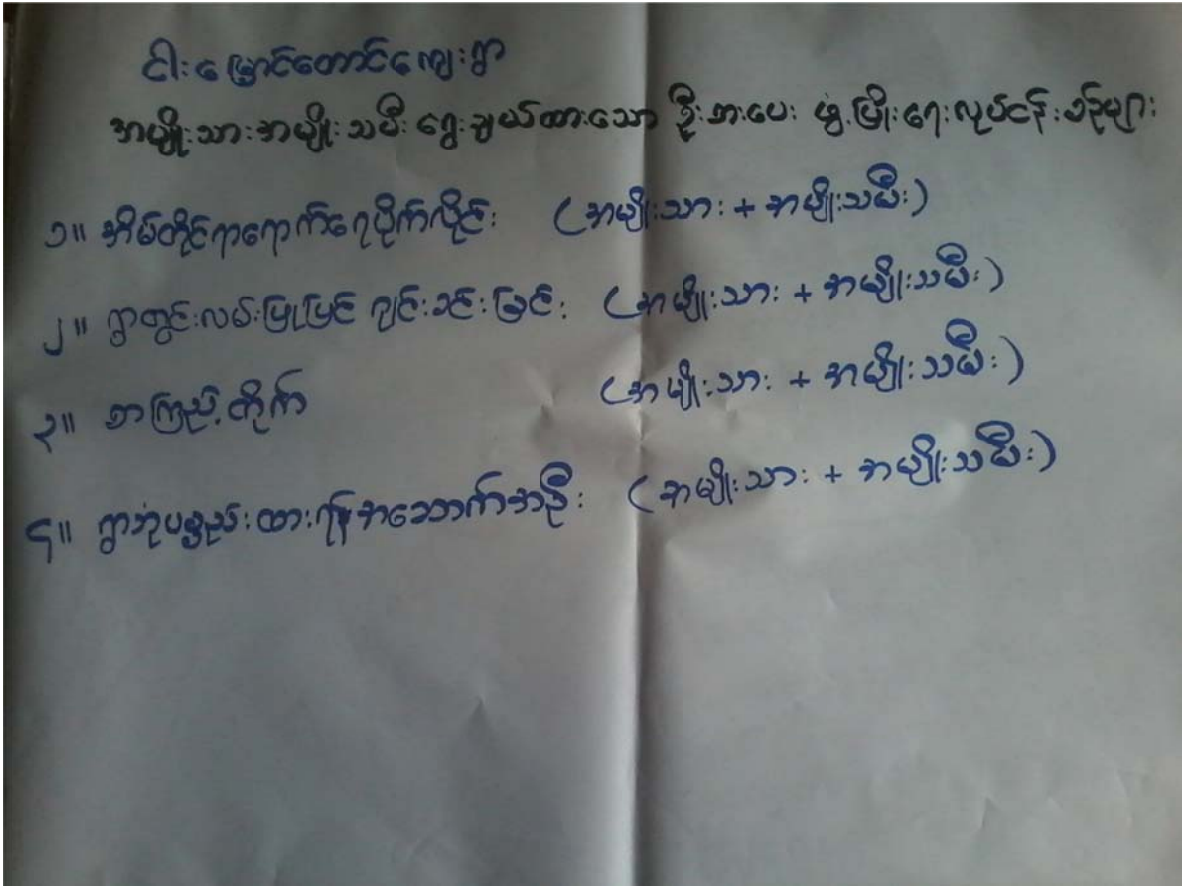 ငါးမြှောင်တောင်ကျေးရွာ
အမျိုးသားအမျိုးသမီး ရွေးချယ်ထားသော ဦးစားပေး ဖွံ့ဖြိုးရေးလုပ်ငန်းစဉ်များ
၁။ အိမ်တိုင်ရာရောက်ရေပိုက်လိုင်း (အမျိုးသား + အမျိုးသမီး)
၂။ ရွာတွင်းလမ်းပြုပြင် ဂျင်းခင်းခြင်း (အမျိုးသား + အမျိုးသမီး)
၃။ စာကြည့်တိုက် (အမျိုးသား + အမျိုးသမီး)
၄။ ရွာဘုံပစ္စည်းထားရန်အဆောက်အဦး (အမျိုးသား + အမျိုးသမီး)